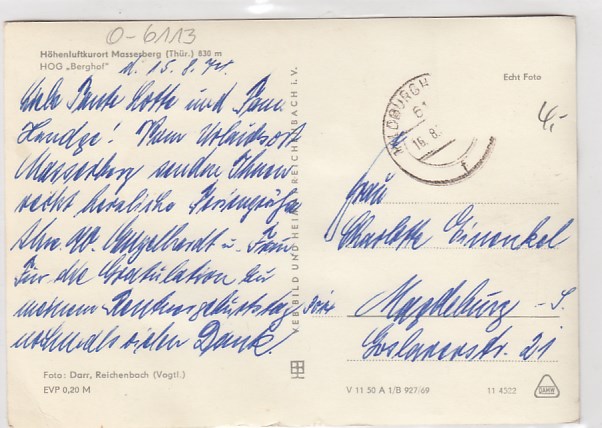 O-6113
Höhenluftkurort Masserberg (Thür.) 830 m
HOG „Berghof"
d. 15.8.71.
Liebe Tante Lotte und Frau
! Vom Urlaubsort
Masserberg senden Ihnen
recht herzliche Feriengrüße
Ihre Engelhardt u. Frau
Für die Gratulation zu
meinem Rentnergeburtstag
nochmals vielen Dank.
Foto: Darr, Reichenbach (Vogtl.)
EVP 0,20 M
VEB BILD UND HEIMAT REICHENBACH I. V.
Echt Foto
4,-
61
16.8.
Frau
Charlotte Einenkel
Magdeburg - S.
Goslarerstr. 21
V 11 50 A 1/B 927/69
11 4322